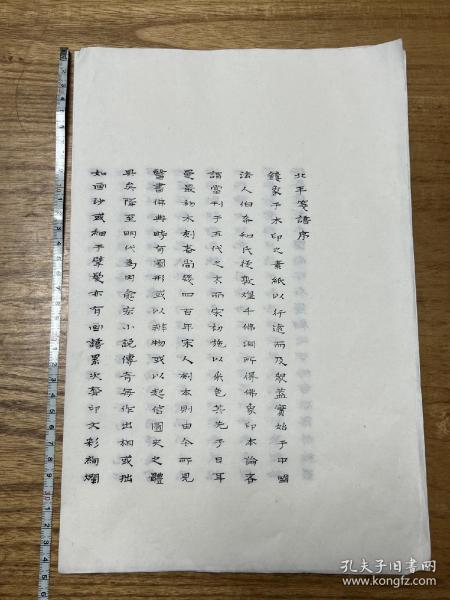 北平箋譜序
鏤象于木印之素紙以行遠而及眾蓋實始于中國
法人伯希和氏從敦煌千佛洞所得佛象印本論者
謂當刊于五代之末而宋初施以采色其先于日耳
曼最初木刻者尚幾四百年宋人刻本則由今所見
醫書佛典時有圖形或以辨物或以起信圖史之體
具矣降至明代為用愈宏小說傳奇每作出相或拙
如画沙或細于擘髮亦有画譜累次套印文彩絢爛
孔夫子旧书网
www.kongfz.com